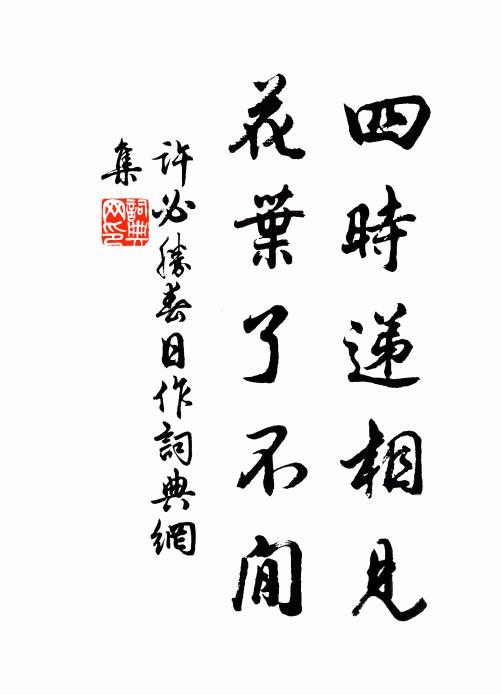 四時递相見
花葉了不閒
許必勝春日作詞典網
集
詞典
网印